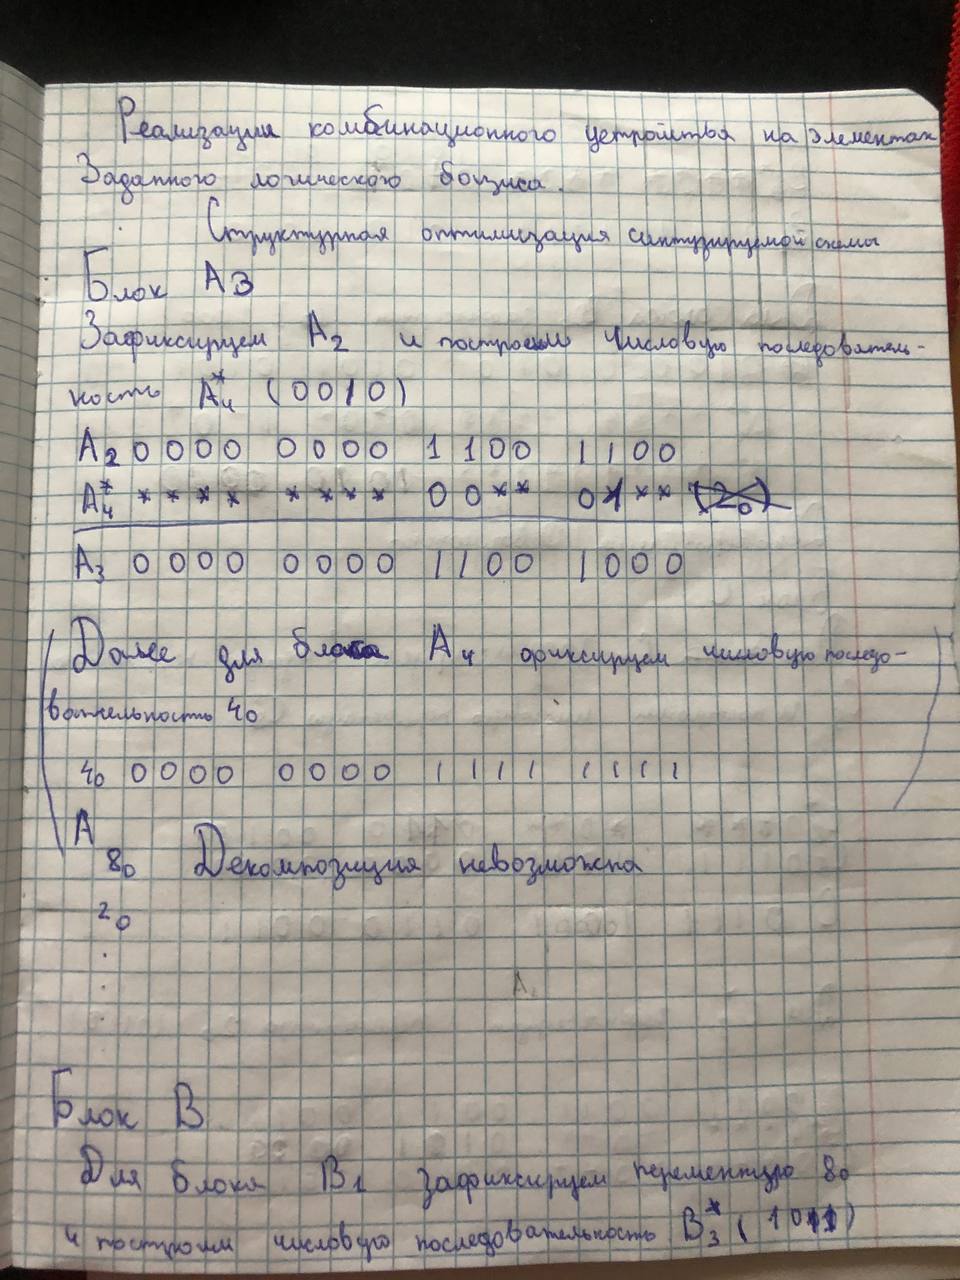 Реализация комбинационного устройства на элементах
Заданного логического базиса.
Структурная оптимизация синтузируемой схемы
Блок А3
Зафиксируем А2 и построем числовую последователь-
ность А*4 (0010)
А2 0000 0000 1100 1100
А*4 **** **** 00** 01**
А3 0000 0000 1100 1000
Далее для блока А4 фиксируем числовую последо-
вательность 40
40 0000 0000 1111 1111
А
80 Декомпозиция невозможна
20
.
.
.
Блок В
Для блока В1 зафиксируем переменную 80
и построим числовую последовательность В*3 (1011)